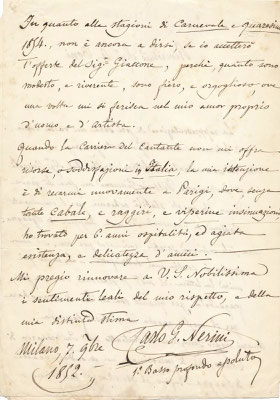 Per quanto alle stagioni di Carnevale e Quaresima
1854., non è ancora a dirsi, se io accetterò
l'offerte del Sig. Giaccone, perchè, quanto sono
modesto, e riverente, sono fiero, e orgoglioso ove
una volta mi si ferisca nel mio amor proprio
d'uomo e d'Artista.
Quando la Carriera del Cantante non mi offra
risorsa, o soddisfazioni in Italia, la mia intenzione
è di recarmi nuovamente a Parigi, dove senza
tante Cabale, e raggiri, e viperine insinuazioni
ho trovato per 6 anni ospitalità, ed agiata
esistenza, e delicatezza d'amici.
Mi pregio rinnovare a V. S. Nobilissima
i sentimenti leali del mio rispetto, e della
mia distinta stima
Milano, 7. 9bre
1852.
Carlo G. Nerini
1º Basso profondo assoluto